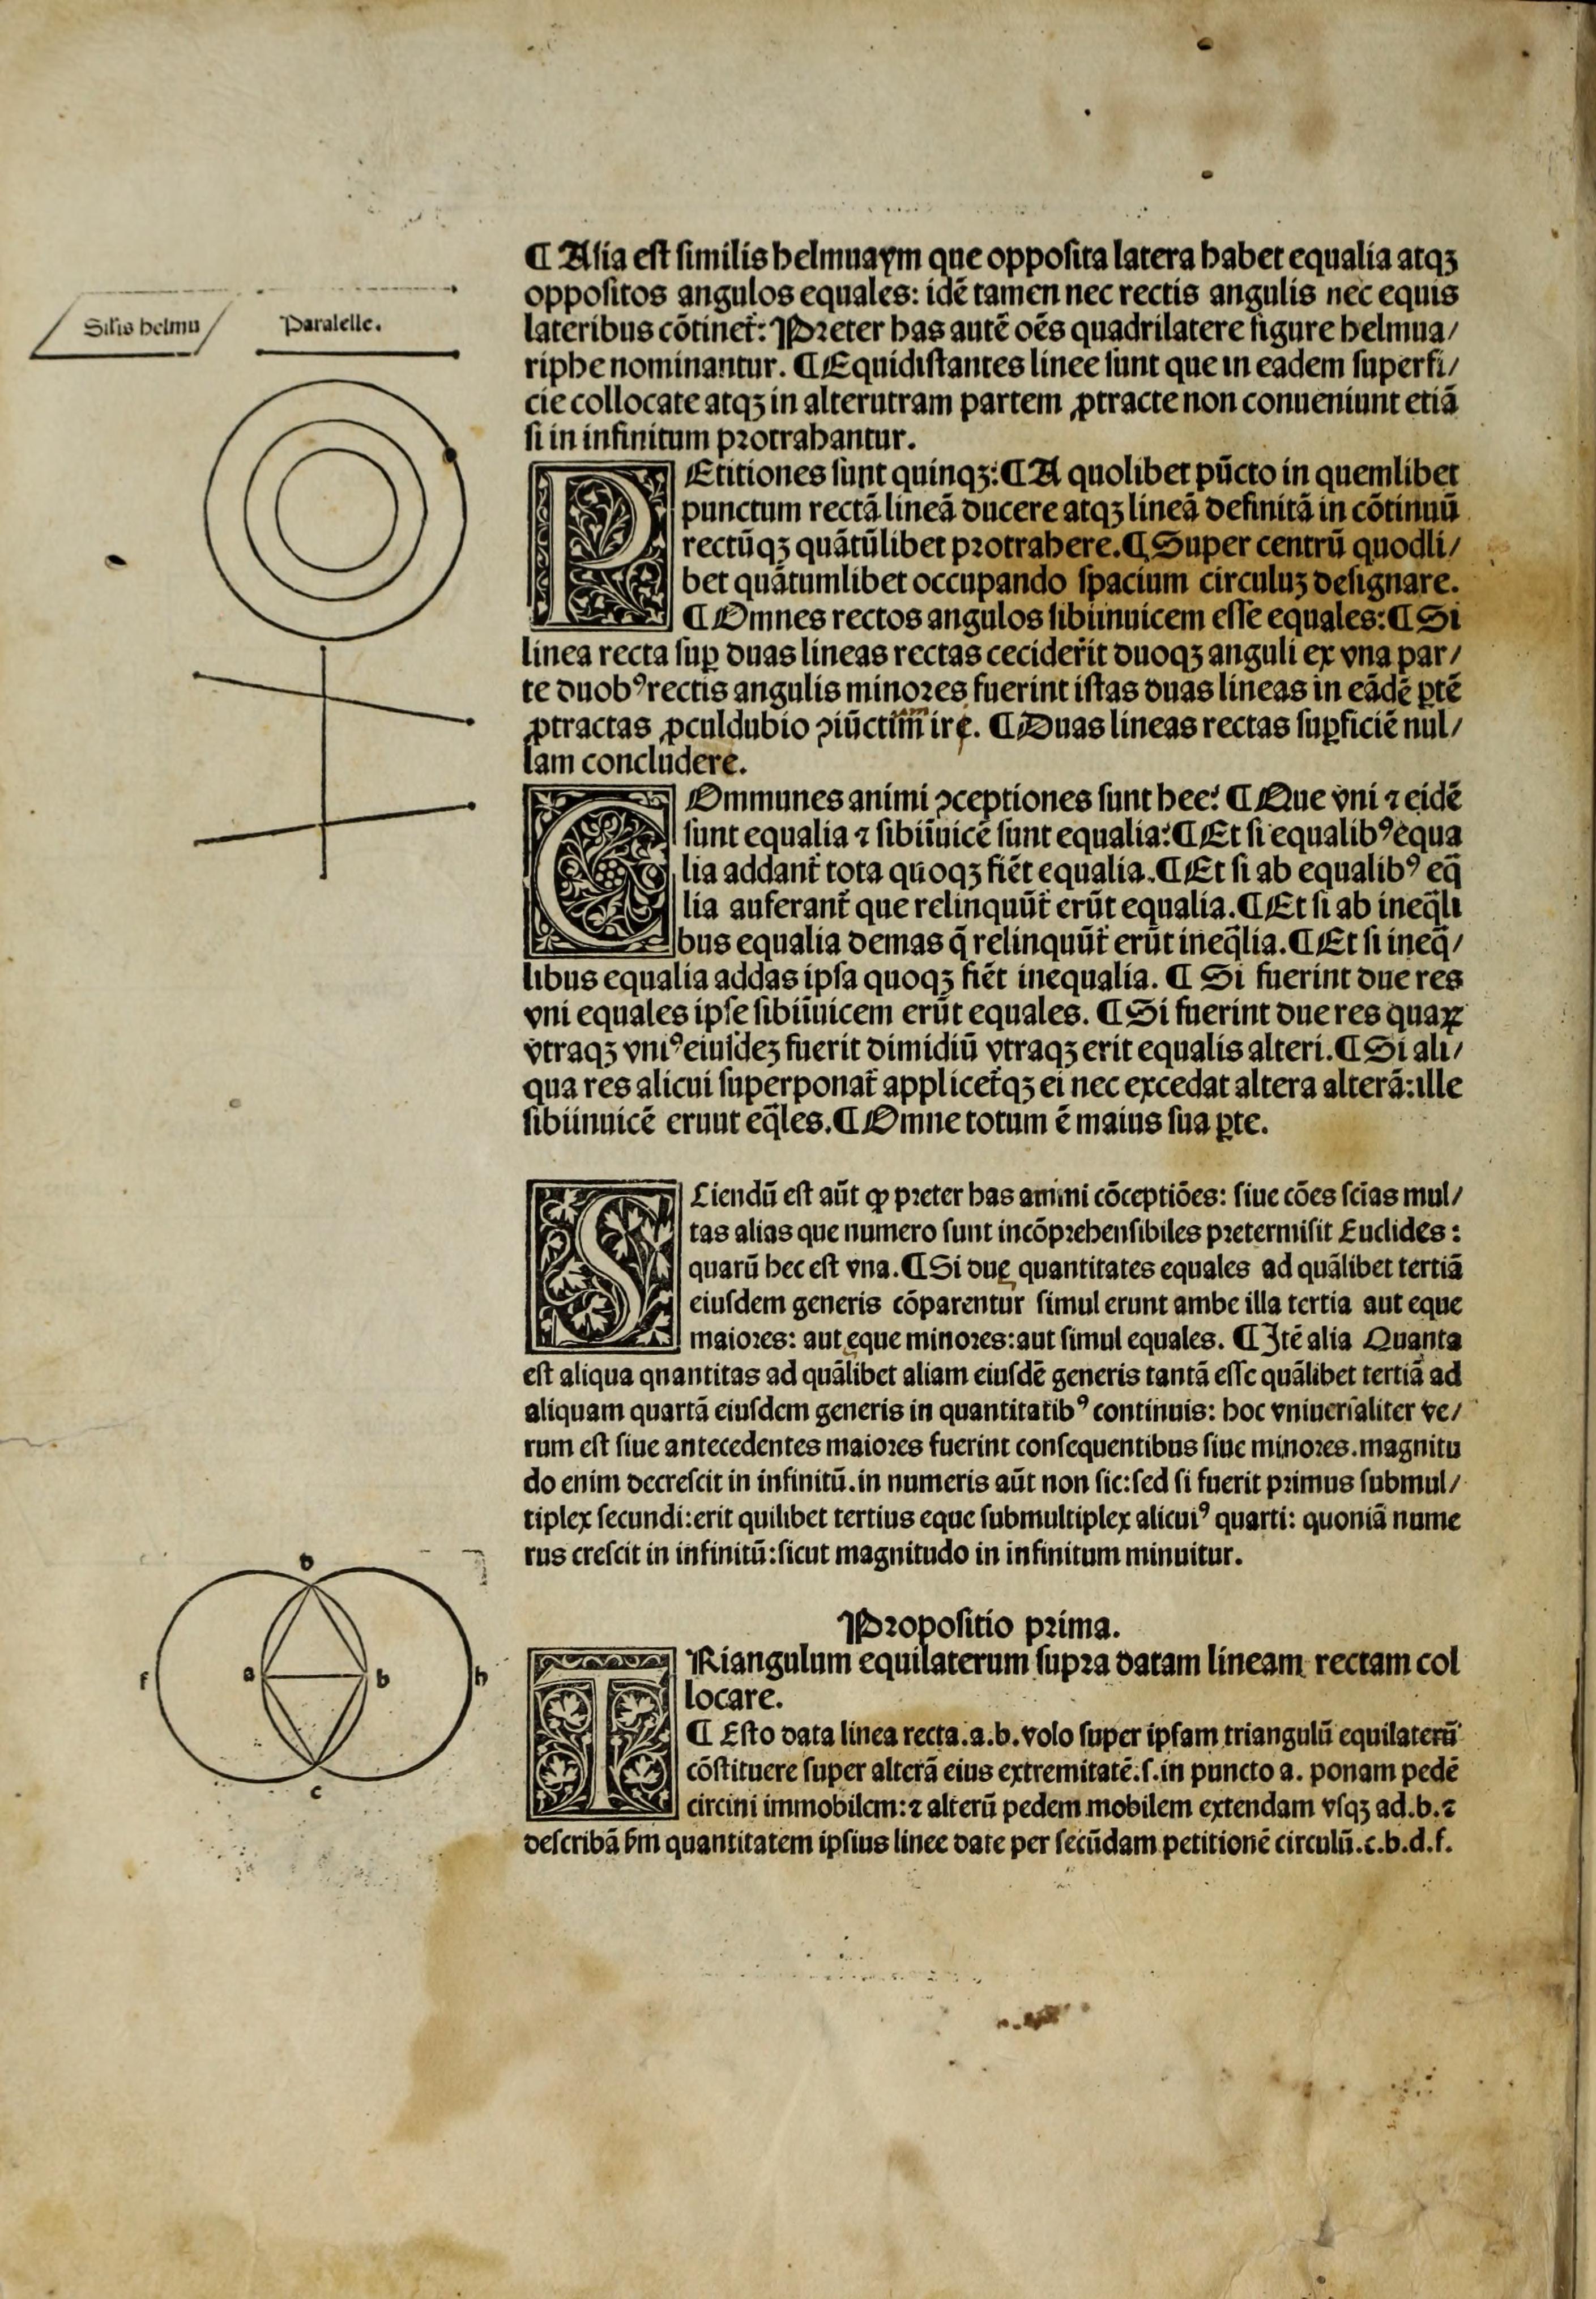 Silis helmu
Paralelle.
¶ Alia est similis helmuaym que opposita latera habet equalia atqꝫ
oppositos angulos equales: idē tamen nec rectis angulis nec equis
lateribus cōtinet̃: Preter has autē oēs quadrilatere figure helmua/
riphe nominantur. ¶ Equidistantes linee sunt que in eadem superfi/
cie collocate atqꝫ in alterutram partem ꝓtracte non conueniunt etiā
si in infinitum protrahantur.
PEtitiones sunt quinqꝫ: ¶ A quolibet pūcto in quemlibet
punctum rectā lineā ducere atqꝫ lineā definitā in cōtinuū
rectūqꝫ quātūlibet protrahere. ¶ Super centrū quodli/
bet quātumlibet occupando spacium circuluꝫ designare.
¶ Omnes rectos angulos sibiinuicem esse equales: ¶ Si
linea recta suꝑ duas lineas rectas cecider̃it duoqꝫ anguli ex vna par/
te duobꝰ rectis angulis minores fuerint istas duas lineas in eādē ꝑtē
ꝓtractas ꝓculdubio ꝯiūctim ire. ¶ Duas lineas rectas suꝑficiē nul/
lam concludere.
COmmunes animi ꝯceptiones sunt hec: ¶ Que vni ⁊ eidē
sunt equalia ⁊ sibiīuicē sunt equalia: ¶ Et si equalibꝰ equa
lia addant̃ tota quoqꝫ fiēt equalia. ¶ Et si ab equalibꝰ eq̄
lia auferant̃ que relinquūt̃ erūt equalia. ¶ Et si ab ineq̄li
bus equalia demas q̄ relinquūt̃ erūt ineq̄lia. ¶ Et si ineq̄/
libus equalia addas ipsa quoqꝫ fiēt inequalia. ¶ Si fuerint due res
vni equales ipse sibiīuicem erūt equales. ¶ Si fuerint due res quaꝝ
vtraqꝫ vniꝰ eiusdeꝫ fuerit dimidiū vtraqꝫ erit equalis alteri. ¶ Si ali/
qua res alicui superponat̃ applicet̃qꝫ ei nec excedat altera alterā: ille
sibiinuicē eruut eq̄les. ¶ Omne totum ē maius sua ꝑte.
SCiendū est aūt ꝙ preter has animi cōceptiōes: siue cōes scīas mul/
tas alias que numero sunt incōprehensibiles pretermisit Euclides:
quarū hec est vna. ¶ Si due quantitates equales ad quālibet tertiā
eiusdem generis cōparentur simul erunt ambe illa tertia aut eque
maiores: aut eque minores: aut simul equales. ¶ Itē alia Quanta
est aliqua qnantitas ad quālibet aliam eiusdē generis tantā esse quālibet tertiā ad
aliquam quartā eiusdem generis in quantitatibꝰ continuis: hoc vniuersaliter ve/
rum est siue antecedentes maiores fuerint consequentibus siue minores. magnitu
do enim decrescit in infinitū. in numeris aūt non sic: sed si fuerit primus submul/
tiplex secundi: erit quilibet tertius eque submultiplex alicuiꝰ quarti: quoniā nume
rus crescit in infinitū: sicut magnitudo in infinitum minuitur.
Propositio prima.
TRiangulum equilaterum supra datam lineam rectam col
locare.
¶ Esto data linea recta. a.b. volo super ipsam triangulū equilaterū
cōstituere super alterā eius extremitatē: s. in puncto a. ponam pedē
circini immobilem: ⁊ alterū pedem mobilem extendam vsqꝫ ad. b. ⁊
describā ẜm quantitatem ipsius linee date per secūdam petitionē circulū. c.b.d.f.
d
f a b h
c